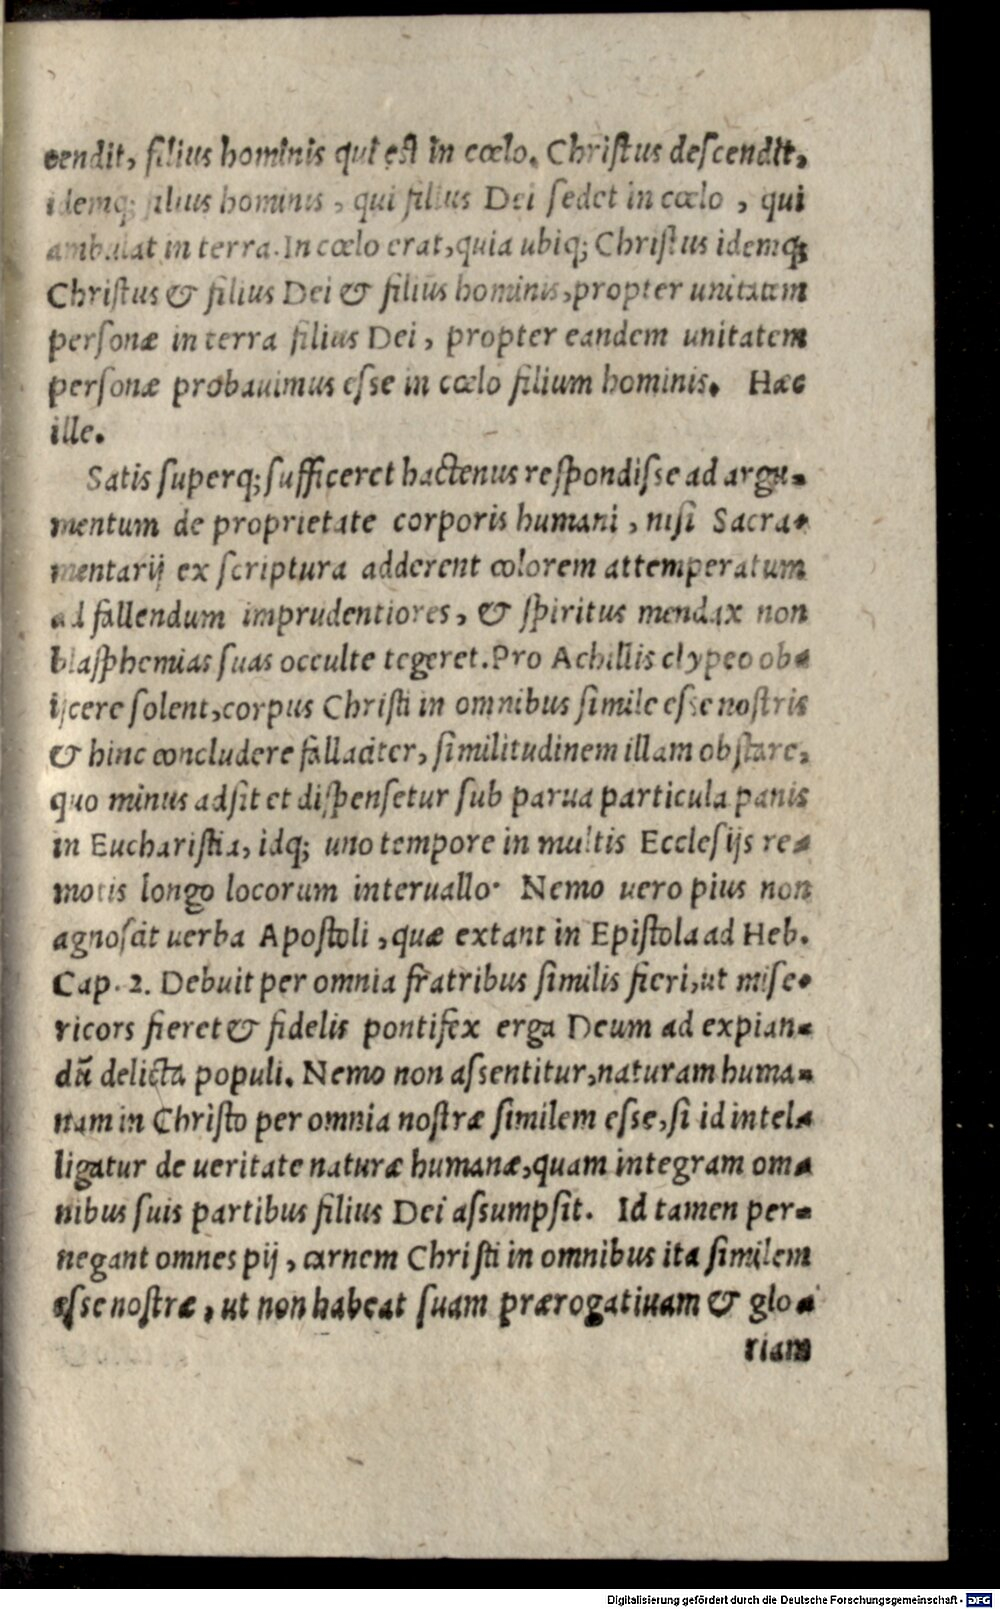 cendit, filius hominis qui est in cœlo. Christus descendit,
idemq; filius hominis, qui filius Dei sedet in cœlo, qui
ambulat in terra. In cœlo erat, quia ubiq; Christus idemq;
Christus & filius Dei & filius hominis, propter unitatem
personæ in terra filius Dei, propter eandem unitatem
personæ probauimus esse in cœlo filium hominis. Hæc
ille.
Satis superq; sufficeret hactenus respondisse ad argu-
mentum de proprietate corporis humani, nisi Sacra-
mentarij ex scriptura adderent colorem attemperatum
ad fallendum imprudentiores, & spiritus mendax non
blasphemias suas occulte tegeret. Pro Achillis clypeo ob-
ijcere solent, corpus Christi in omnibus simile esse nostris
& hinc concludere fallaciter, similitudinem illam obstare,
quo minus adsit et dispensetur sub parua particula panis
in Eucharistia, idq; uno tempore in multis Ecclesijs re-
motis longo locorum interuallo. Nemo uero pius non
agnoscit uerba Apostoli, quæ extant in Epistola ad Heb.
Cap. 2. Debuit per omnia fratribus similis fieri, ut mise-
ricors fieret & fidelis pontifex erga Deum ad expian-
dū delicta populi. Nemo non assentitur, naturam huma-
nam in Christo per omnia nostræ similem esse, si id intel-
ligatur de ueritate naturæ humanæ, quam integram om-
nibus suis partibus filius Dei assumpsit. Id tamen per-
negant omnes pij, carnem Christi in omnibus ita similem
esse nostræ, ut non habeat suam prærogatiuam & glo-
riam
Digitalisierung gefördert durch die Deutsche Forschungsgemeinschaft - DFG